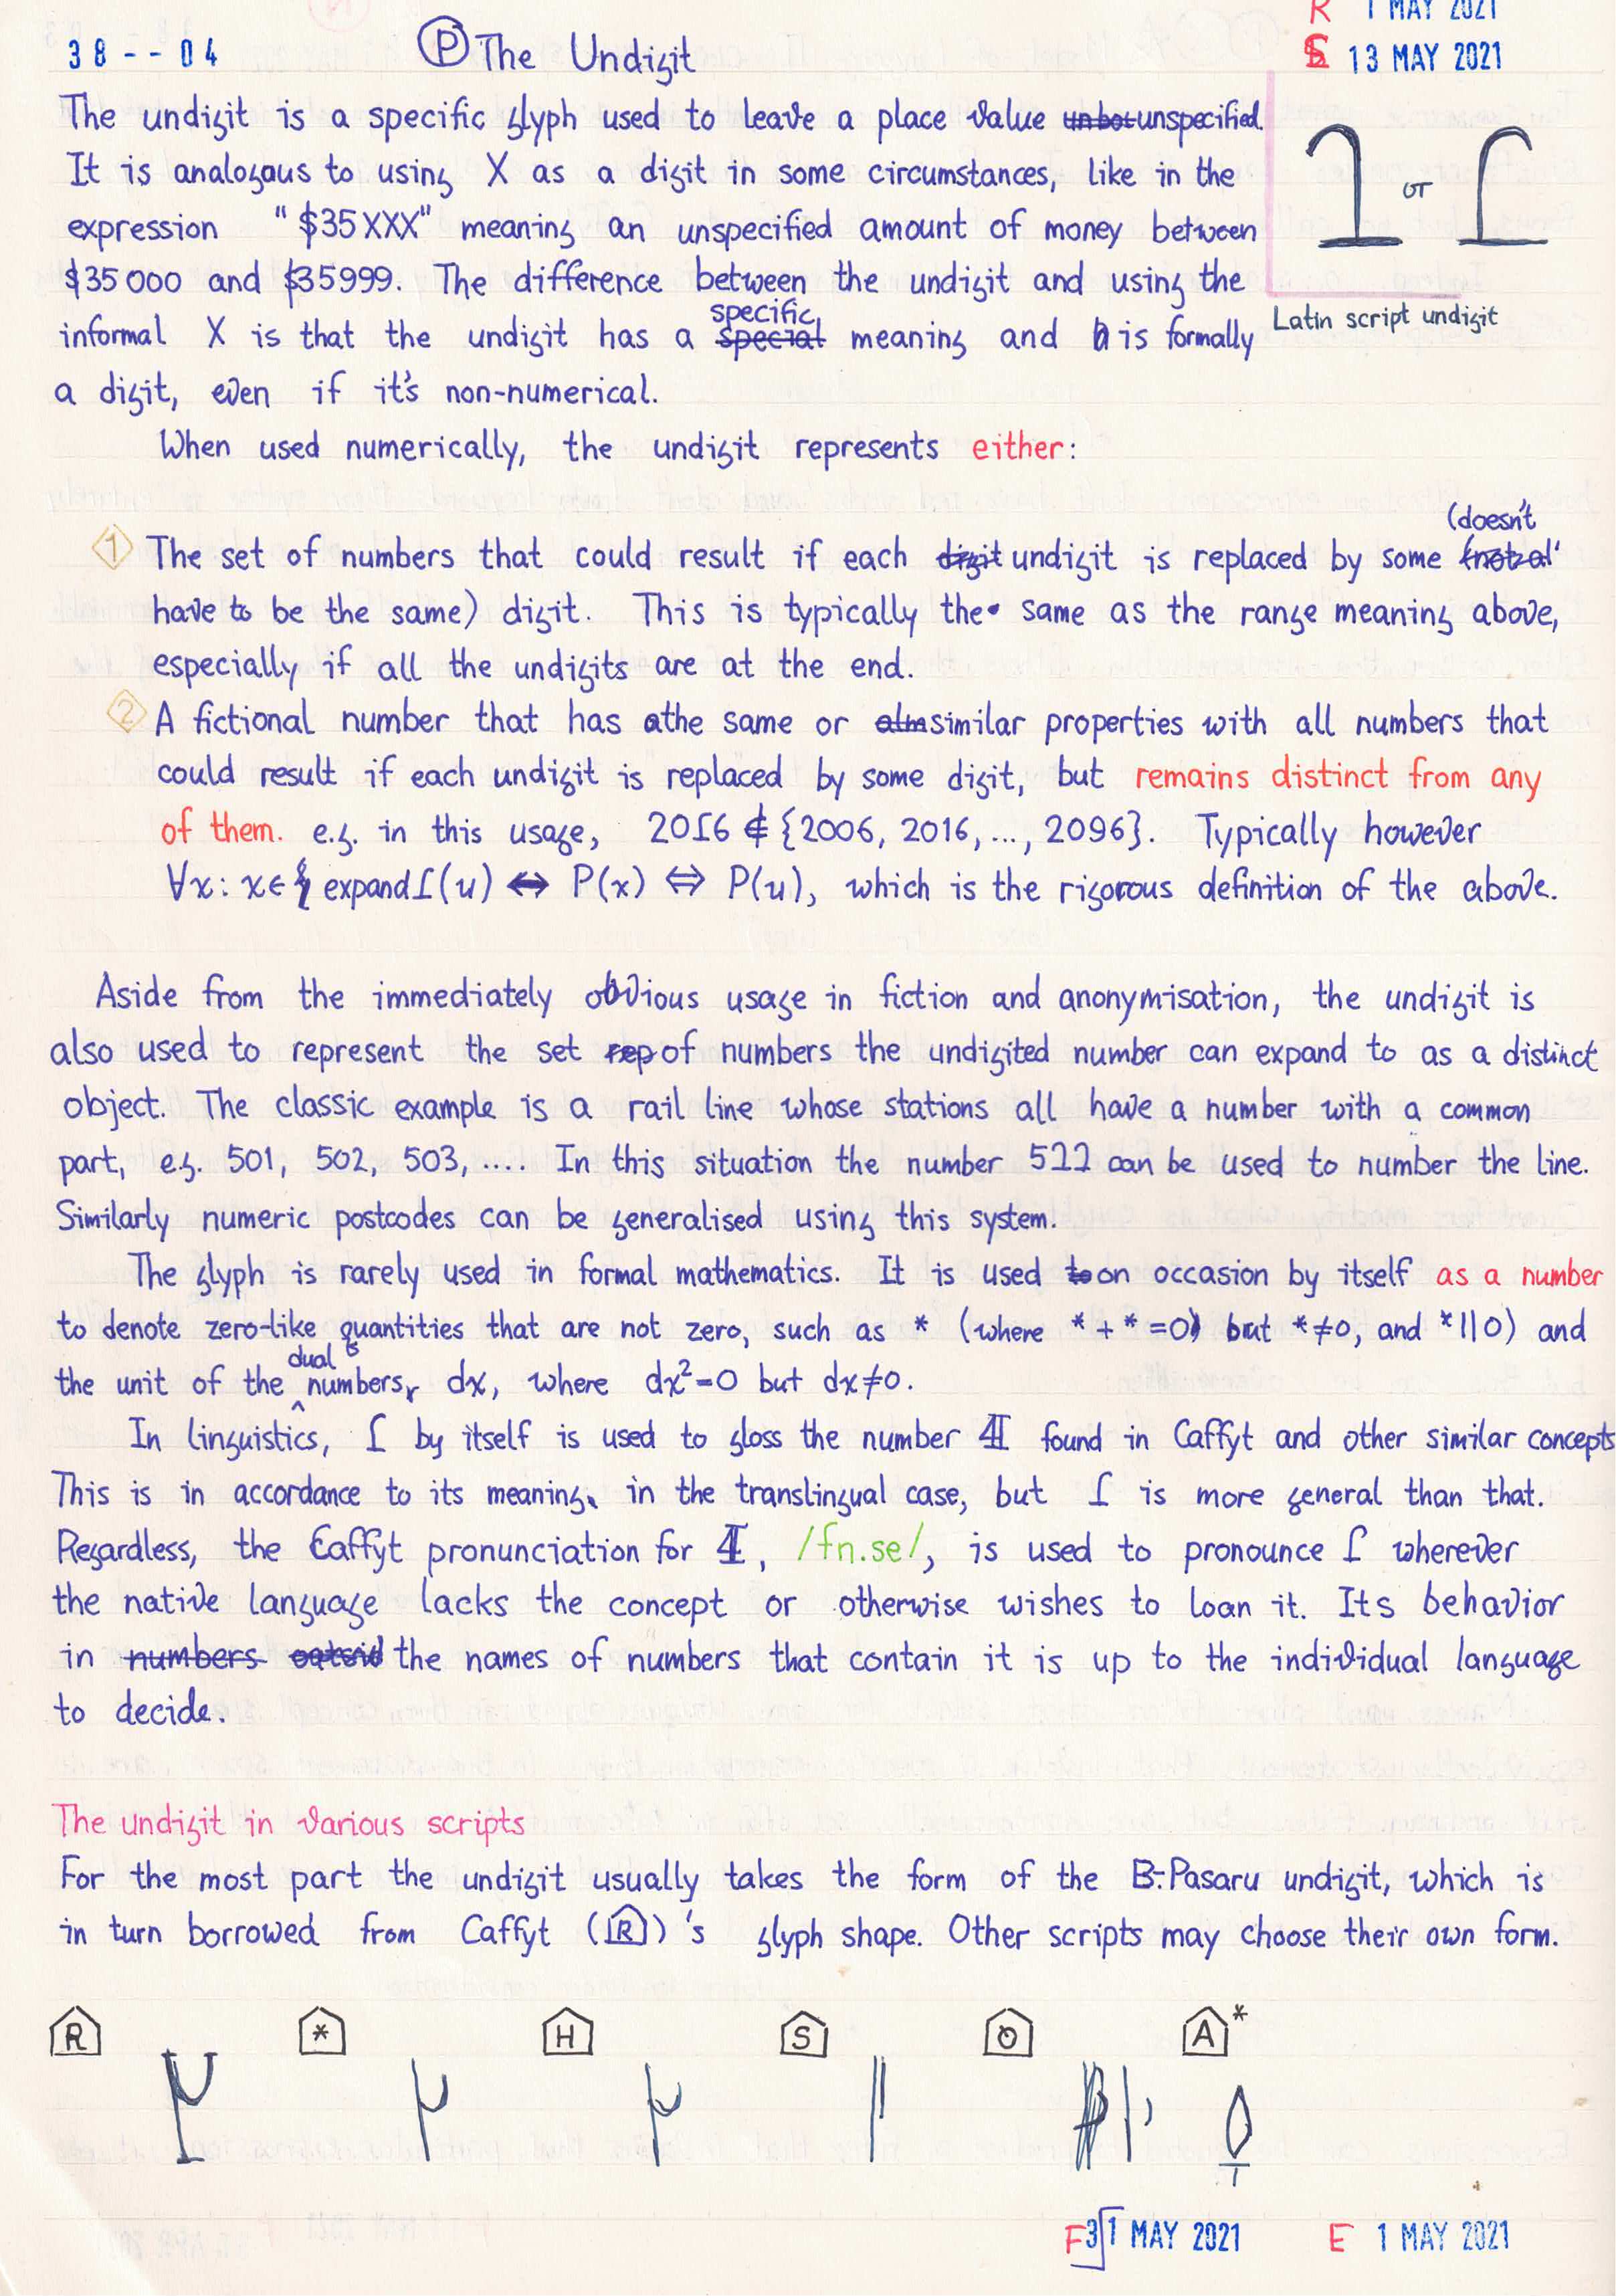 R 1 MAY 2021
38--04 Ⓟ The Undigit S 13 MAY 2021
The undigit is a specific glyph used to leave a place value unbou unspecified.
It is analogous to using X as a digit in some circumstances, like in the
expression "$35XXX" meaning an unspecified amount of money between
$35000 and $35999. The difference between the undigit and using the
informal X is that the undigit has a special specific meaning and is formally
a digit, even if it's non-numerical.
or
Latin script undigit
When used numerically, the undigit represents either:
1 The set of numbers that could result if each digit undigit is replaced by some (doesn't
have to be the same) digit. This is typically the same as the range meaning above,
especially if all the undigits are at the end.
2 A fictional number that has the same or similar properties with all numbers that
could result if each undigit is replaced by some digit, but remains distinct from any
of them. e.g. in this usage, 20ſ6 ∉ {2006, 2016, ..., 2096}. Typically however
∀x: x∈ expandſ(u) ↔ P(x) ⇔ P(u), which is the rigorous definition of the above.
Aside from the immediately obvious usage in fiction and anonymisation, the undigit is
also used to represent the set rep of numbers the undigited number can expand to as a distinct
object. The classic example is a rail line whose stations all have a number with a common
part, e.g. 501, 502, 503, .... In this situation the number 5ʅʅ can be used to number the line.
Similarly numeric postcodes can be generalised using this system.
The glyph is rarely used in formal mathematics. It is used to on occasion by itself as a number
to denote zero-like quantities that are not zero, such as * (where *+*=0 but *≠0, and *||0) and
the unit of the dual numbers, dx, where dx²=0 but dx≠0.
In linguistics, ſ by itself is used to gloss the number found in Caffyt and other similar concepts
This is in accordance to its meaning in the translingual case, but ſ is more general than that.
Regardless, the Caffyt pronunciation for , /fn.se/, is used to pronounce ſ wherever
the native language lacks the concept or otherwise wishes to loan it. Its behavior
in numbers outsid the names of numbers that contain it is up to the individual language
to decide.
The undigit in various scripts
For the most part the undigit usually takes the form of the B:Pasaru undigit, which is
in turn borrowed from Caffyt (R)'s glyph shape. Other scripts may choose their own form.
R * H S O A*
F 31 MAY 2021 E 1 MAY 2021